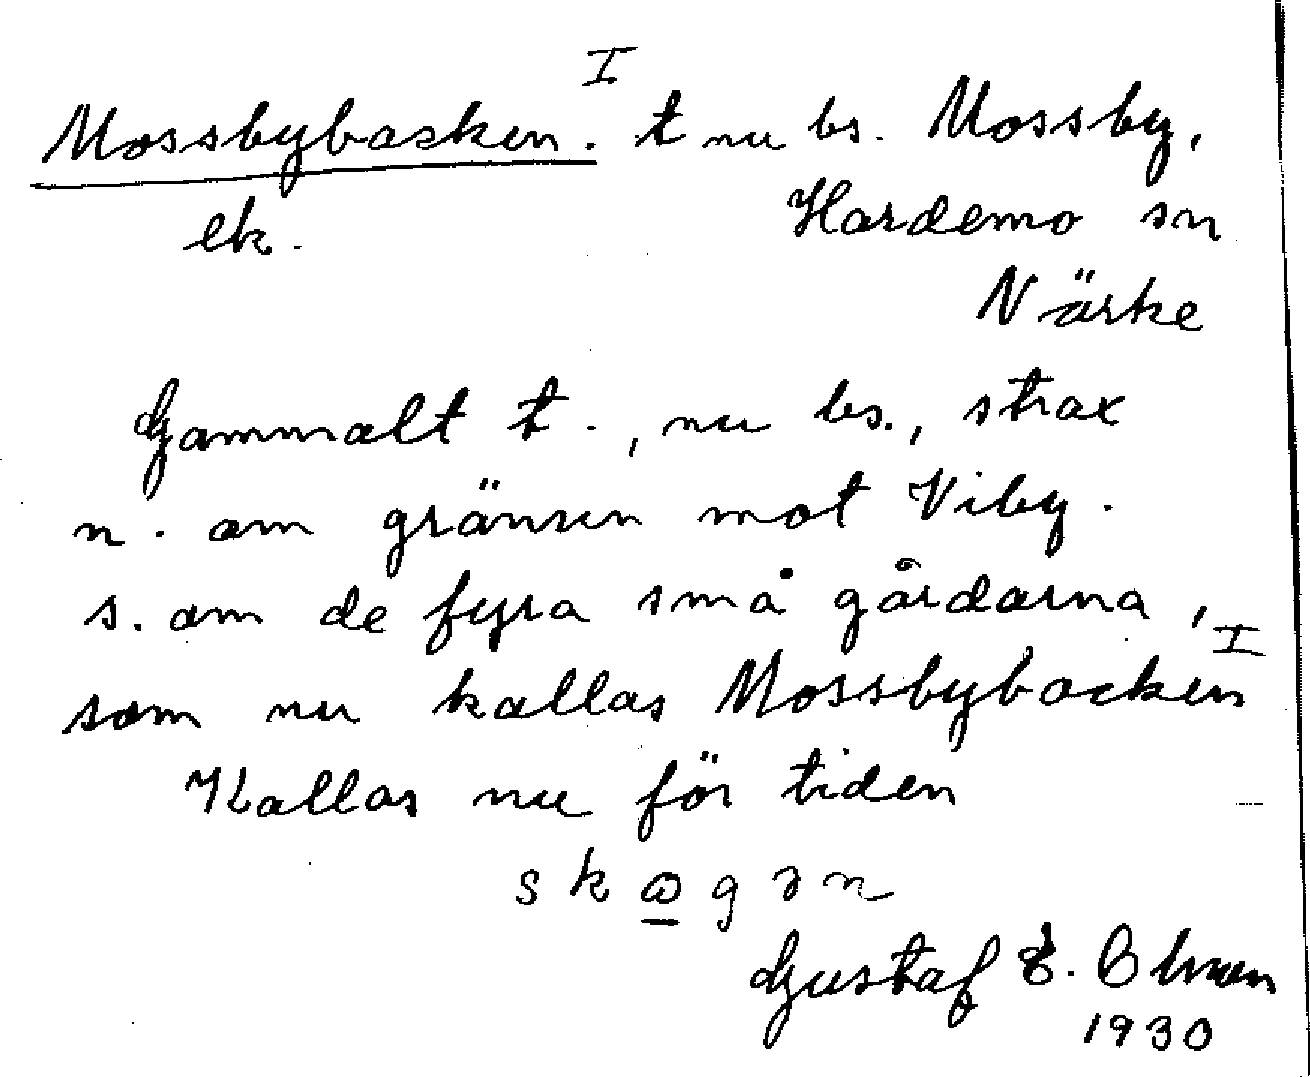 I
Mossbybacken. t nu bs. Mossby,
ek. Hardemo sn
Närke
Gammalt t., nu bs., strax
n. om gränsen mot Viby.
s. om de fyra små gårdarna,
som nu kallas Mossbybacken I
Kallas nu för tiden
skɷgən
Gustaf E. Ohman
1930